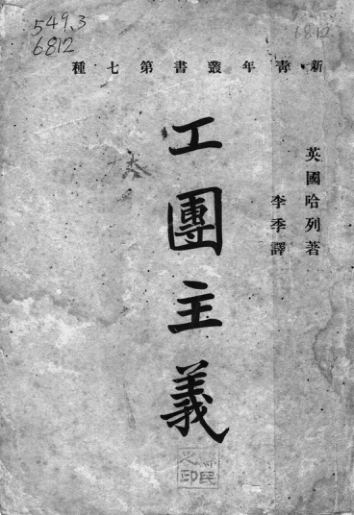 549.3
6812
新青年叢書第七種
英國哈列著
李季譯
工團主義